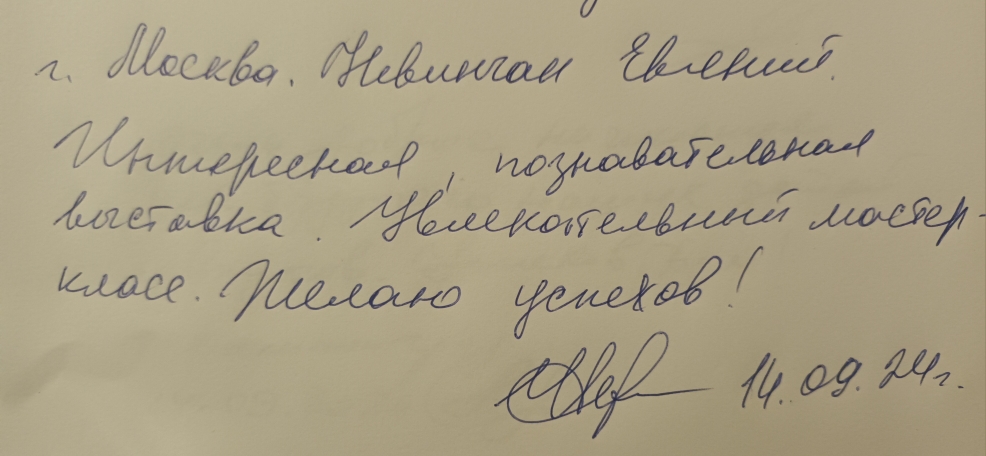 г. Москва. Невинчан Евгений.
Интересная, познавательная
выставка. Увлекательный мастер-
класс. Желаю успехов!
14.09.24г.